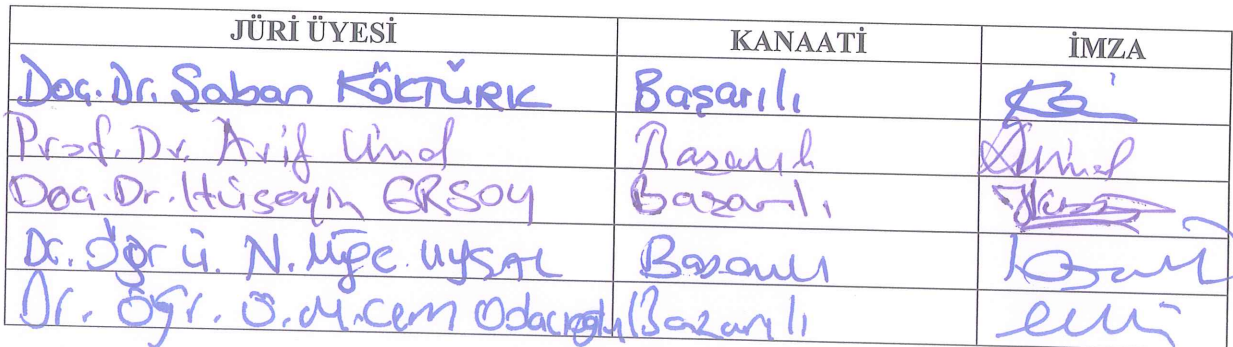 JÜRİ ÜYESİ KANAATİ İMZA
Doç.Dr. Şaban KÖKTÜRK Başarılı
Prof. Dr. Arif Ünal Başarılı
Doç.Dr. Hüseyin ERSOY Başarılı
Dr. Öğr Ü. N. Müge UYSAL Başarılı
Dr. Öğr. Ü. M. Cem Odacıoğlu Başarılı